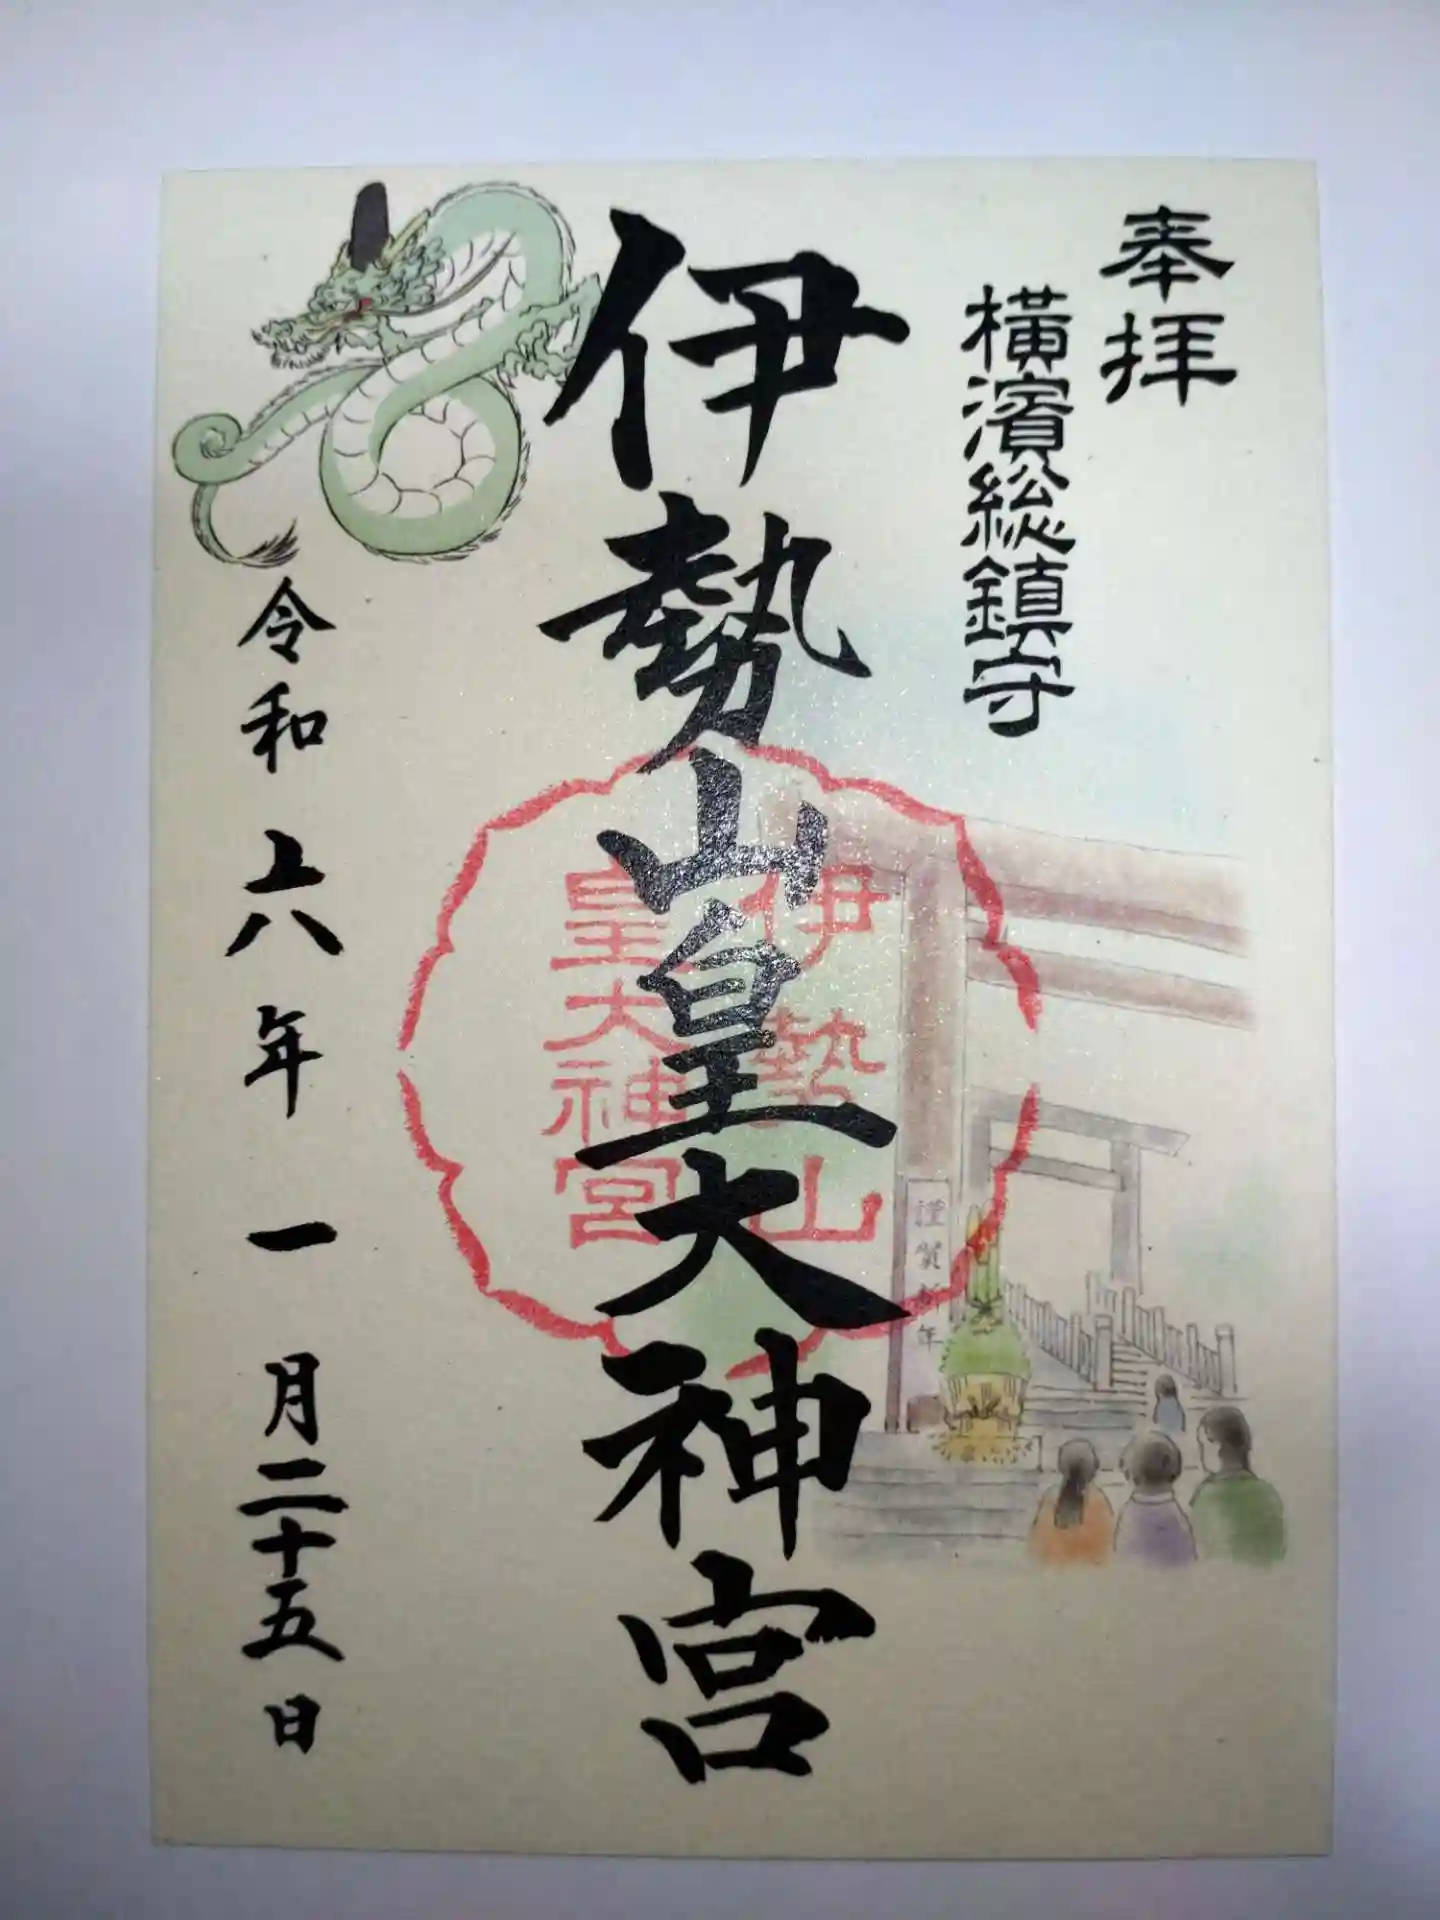 奉拝
横濱総鎮守
伊勢山皇大神宮
伊勢山
皇大神宮
謹賀新年
令和六年一月二十五日